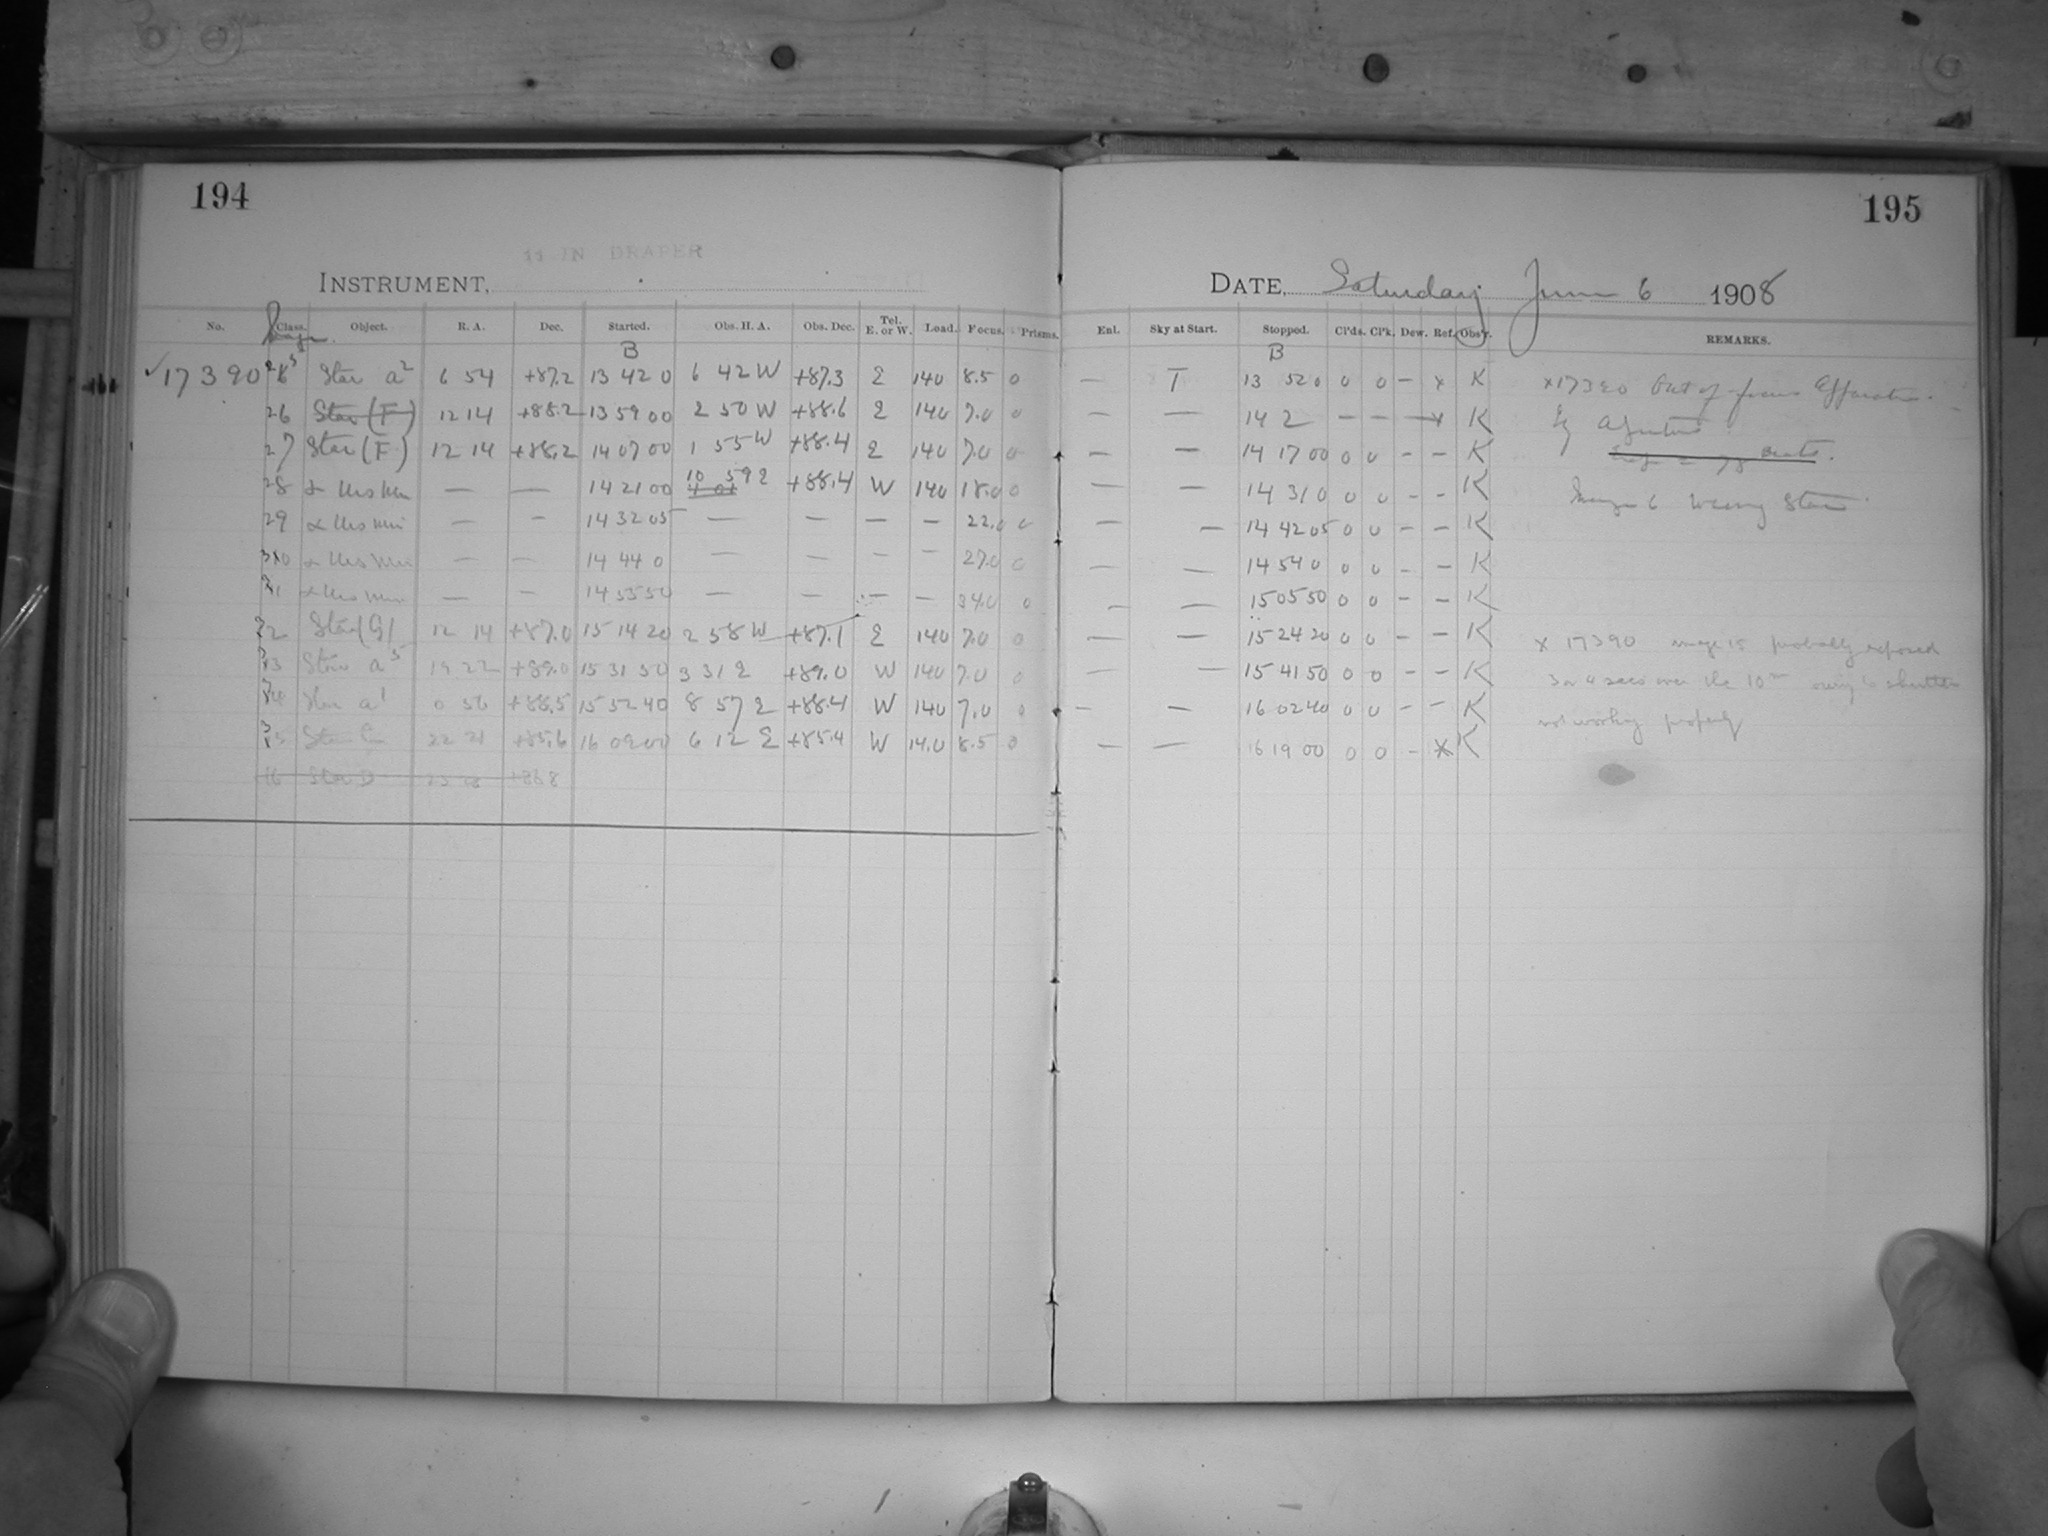 194
11 IN DRAPER
INSTRUMENT,
No. Class. Object. R. A. Dec. Started. Obs. H. A. Obs. Dec. Tel. E. or W. Load. Focus. Prisms.
Image
B
✓17390 Star a² 6 54 +87.2 13 42 0 6 42 W +87.3 E 140 8.5 0
26 Star (F) 12 14 +88.2 13 59 00 2 50 W +88.6 E 140 7.0 0
27 Star (F) 12 14 +88.2 14 07 00 1 55 W +88.4 E 140 7.0 0
28 α Urs Min — — 14 21 00 10 59 E +88.4 W 140 18.0 0
29 α Urs Min — — 14 32 05 — — — — 22.0 0
30 α Urs Min — — 14 44 0 — — — — 27.0 0
31 α Urs Min — — 14 55 50 — — — — 34.0 0
32 Star (G) 12 14 +87.0 15 14 20 2 58 W +87.1 E 140 7.0 0
33 Star a⁵ 19 22 +89.0 15 31 50 3 31 E +89.0 W 140 7.0 0
34 Star a¹ 0 56 +88.5 15 52 40 8 57 E +88.4 W 140 7.0 0
35 Star 22 21 +85.6 16 09 00 6 12 E +85.4 W 14.0 8.5 0
16 Star D +86.8
195
DATE, Saturday June 6 1908
Enl. Sky at Start. Stopped. Cl'ds. Cl'k. Dew. Ref. Obs'r. REMARKS.
B
— T 13 52 0 0 0 – x K x17390 Out of focus
— — 14 2 — — — x K
— — 14 17 00 0 0 – – K
— — 14 31 0 0 0 – – K Image 6 Wrong Star
— — 14 42 05 0 0 – – K
— — 14 54 0 0 0 – – K
— — 15 05 50 0 0 – – K
— — 15 24 20 0 0 – – K x 17390 image 15 probably exposed
— — 15 41 50 0 0 – – K 3 or 4 secs over the 10ᵐ owing to shutter
— — 16 02 40 0 0 – – K not working properly
— — 16 19 00 0 0 – * K